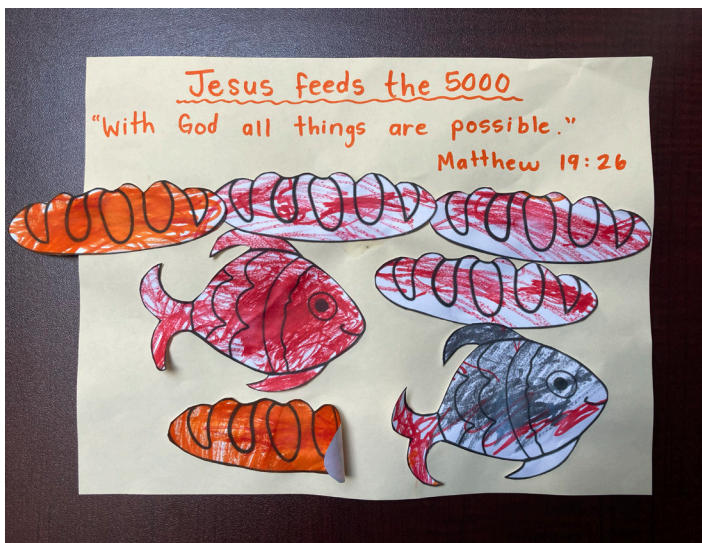 Jesus feeds the 5000
"With God all things are possible."
Matthew 19:26